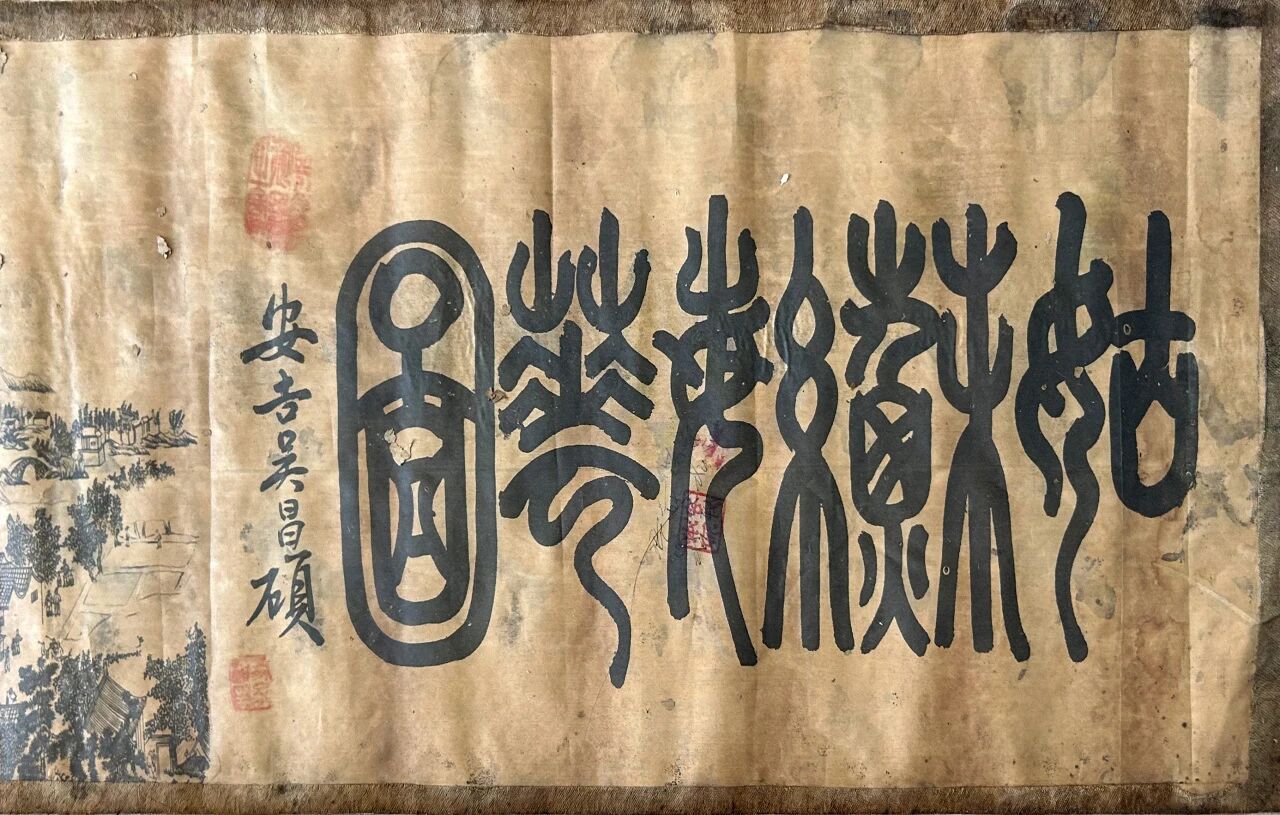 姑蘇繁華圖
安吉吳昌碩